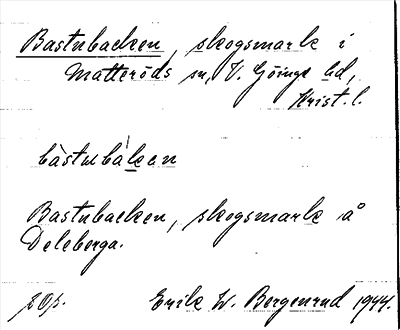 Bastubacken, skogsmark i
Matteröds sn, V. Göinge hd,
Krist. l.
bàstubáken
Bastubacken, skogsmark å
Deleberga.
Erik W. Bergenrud 1944.